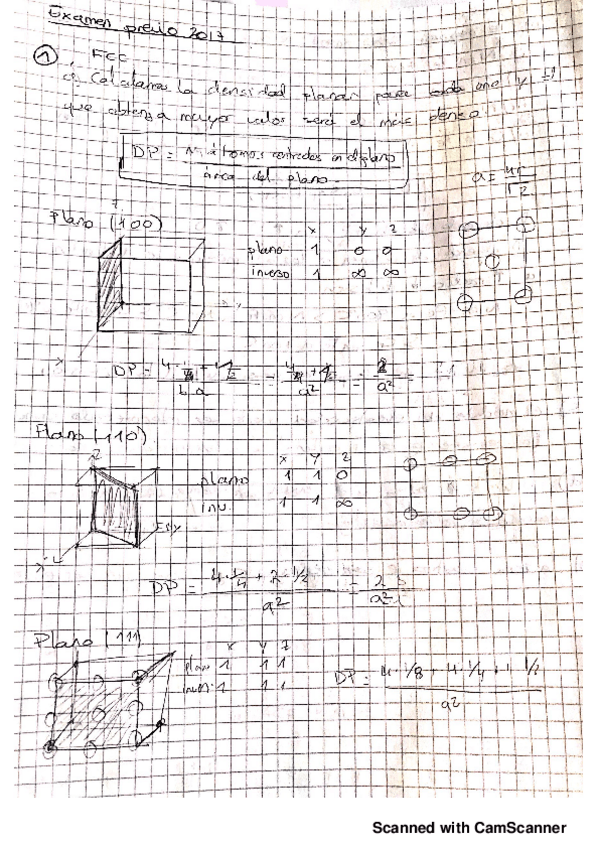 Examen previo 2017
① FCC
Calculamos la densidad planar para cada uno y el
que obtenga mayor valor será el más denso
DP = Nº átomos centrados en el plano
área del plano
a = 4r
√2
Plano (100)
x y z
plano 1 0 0
inverso 1 ∞ ∞
DP = 4 · 1/4 + 1/2
a²
= 2
a²
Plano (110)
z
x y z
plano 1 1 0
inv 1 1 ∞
x
DP = 4 · 1/4 + 2 · 1/2 = 2
a² a²
Plano (111)
x y z
plano 1 1 1
inver 1 1 1
DP = 4 · 1/8 + 4 · 1/4 + 1 1/2
a²
Scanned with CamScanner